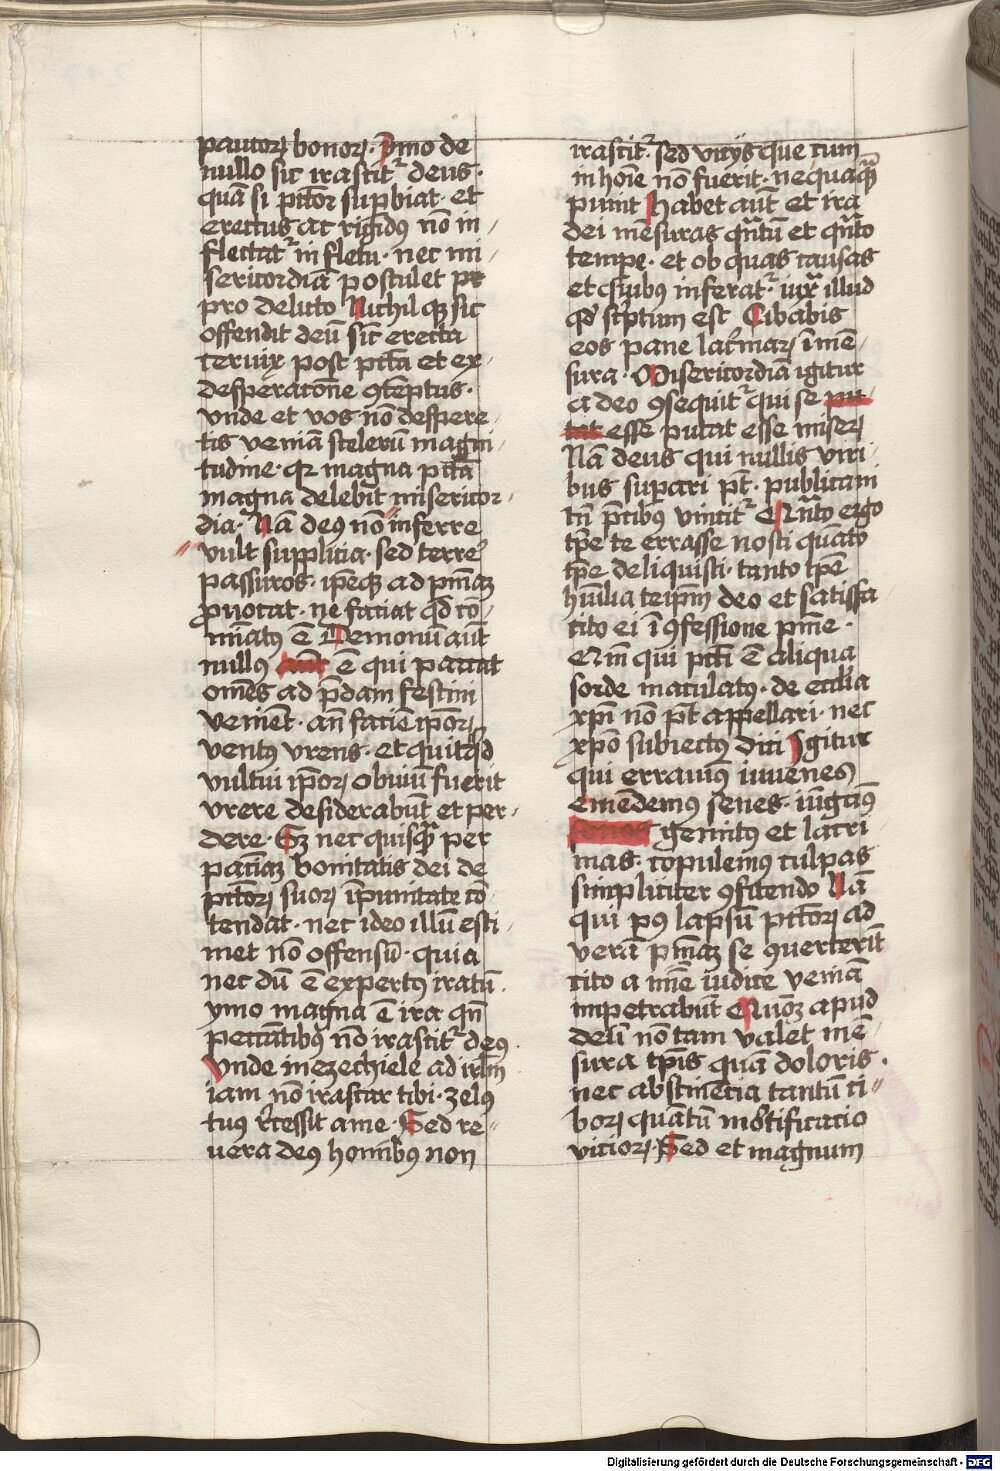 pauoꝝ bonoꝝ. Ymo de
nullo sic irascit᷑ deus.
quā si pctōr supbiat. et
erectus ac rigidꝰ nō in
flectat᷑ in fletu. nec mi
sericordiā postulet
pro delicto Nichil qꝫ sic
offendit deū sic erecta
ceruix post pctā et ex
desperatōne ꝯtēptus.
vnde et vos nō despere
tis veniā scelerū magni
tudine. qꝛ magna pctā
magna delebit misericor
dia. Nā deꝰ nō inferre
vult supplicia. sed terre᷑
passuros. ipēqꝫ ad pniāꝫ
prouocat. ne faciat qd cō
minatꝰ ē Demonū aūt
nullꝰ aūt ē qui parcat
omēs ad p̄dam festini
venient. an̄ faciē ipoꝝ
ventꝰ vrens. et quitqd
vultui ipoꝝ obuiū fuerit
vrere desiderabūt et per
dere. Sꝫ nec quisqꝫ per
paciāꝫ bonitatis dei de
pctōꝝ suoꝝ īpunitate cō
tendat. nec ideo illū esti
met nō offensū. quia
nec dū ē expertꝰ iratū.
ymo magna ē ira qn̄
peccātibꝰ nō irascit᷑ deꝰ
Vnde in ezechiele ad irlm̄
iam nō irascar tibi. zelꝰ
tuꝰ rcessit a me. Sed re
uera deꝰ hominibꝰ non
irascit᷑. sed vicijs que cum
in hoīe nō fuerit. nequaqꝫ
punit Habet aūt et ira
dei mēsuras qn̄tū et qn̄to
tempe. et ob quas causas
et quibus inferat᷑. iuxᵃ illud
qd scptum est Cibabis
eos pane lacrimaꝝ ī mē
sura. Misericordiā igitur
a deo ꝯsequit᷑ qui se pu
tat esse putat esse miseꝝ
Nā deus qui nullis viri
bus supari pt. publicani
tn̄ pcibꝰ vincit᷑ Quāto ergo
tpe te errasse nosti quāto
tpe deliquisti. tanto tpē
hūilia teipm̄ deo et satisfa
cito ei ī ꝯfessione pnīe.
Nam qui pcti ē aliqua
sorde maculatꝰ. de ecclīa
xpi nō pt appellari. nec
xpo subiectꝰ dici Igitur
qui erraviꝰ iuvenes
emēdemꝰ senes. iūgāꝰ
senes gemitꝰ et lacri
mas. copulemꝰ culpas
simpliciter ꝯfitendo Nā
qui pꝰ lapsū pctōꝝ ad
verā pniāꝫ se ꝯuerterīt
cito a īmē iudice veniā
impetrabūt Quoꝫ apud
deū nō tam valet mē
sura tpis quā doloris.
nec abstinēcia tantū ci
boꝝ quātū mortificacio
vicioꝝ. Sed et magnum
Digitalisierung gefördert durch die Deutsche Forschungsgemeinschaft - DFG